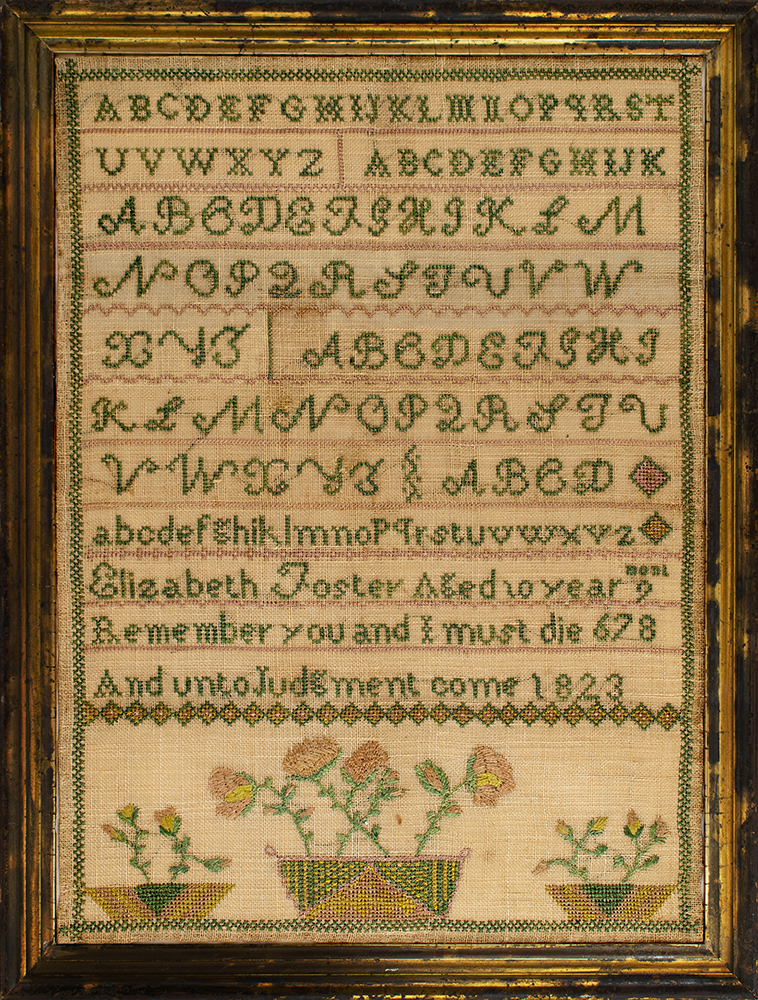 ABCDEFGHIJKLMNOPQRST
UVWXYZ ABCDEFGHIJK
ABCDEFGHIKLM
NOPQRSTUVW
XYZ ABCDEFGHI
KLMNOPQRSTU
VWXYZ ABCD
abcdefghiklmnopqrstuvwxyz
Elizabeth Foster Aged 10 year 9
Remember you and I must die 678
And unto Judgment come 1823